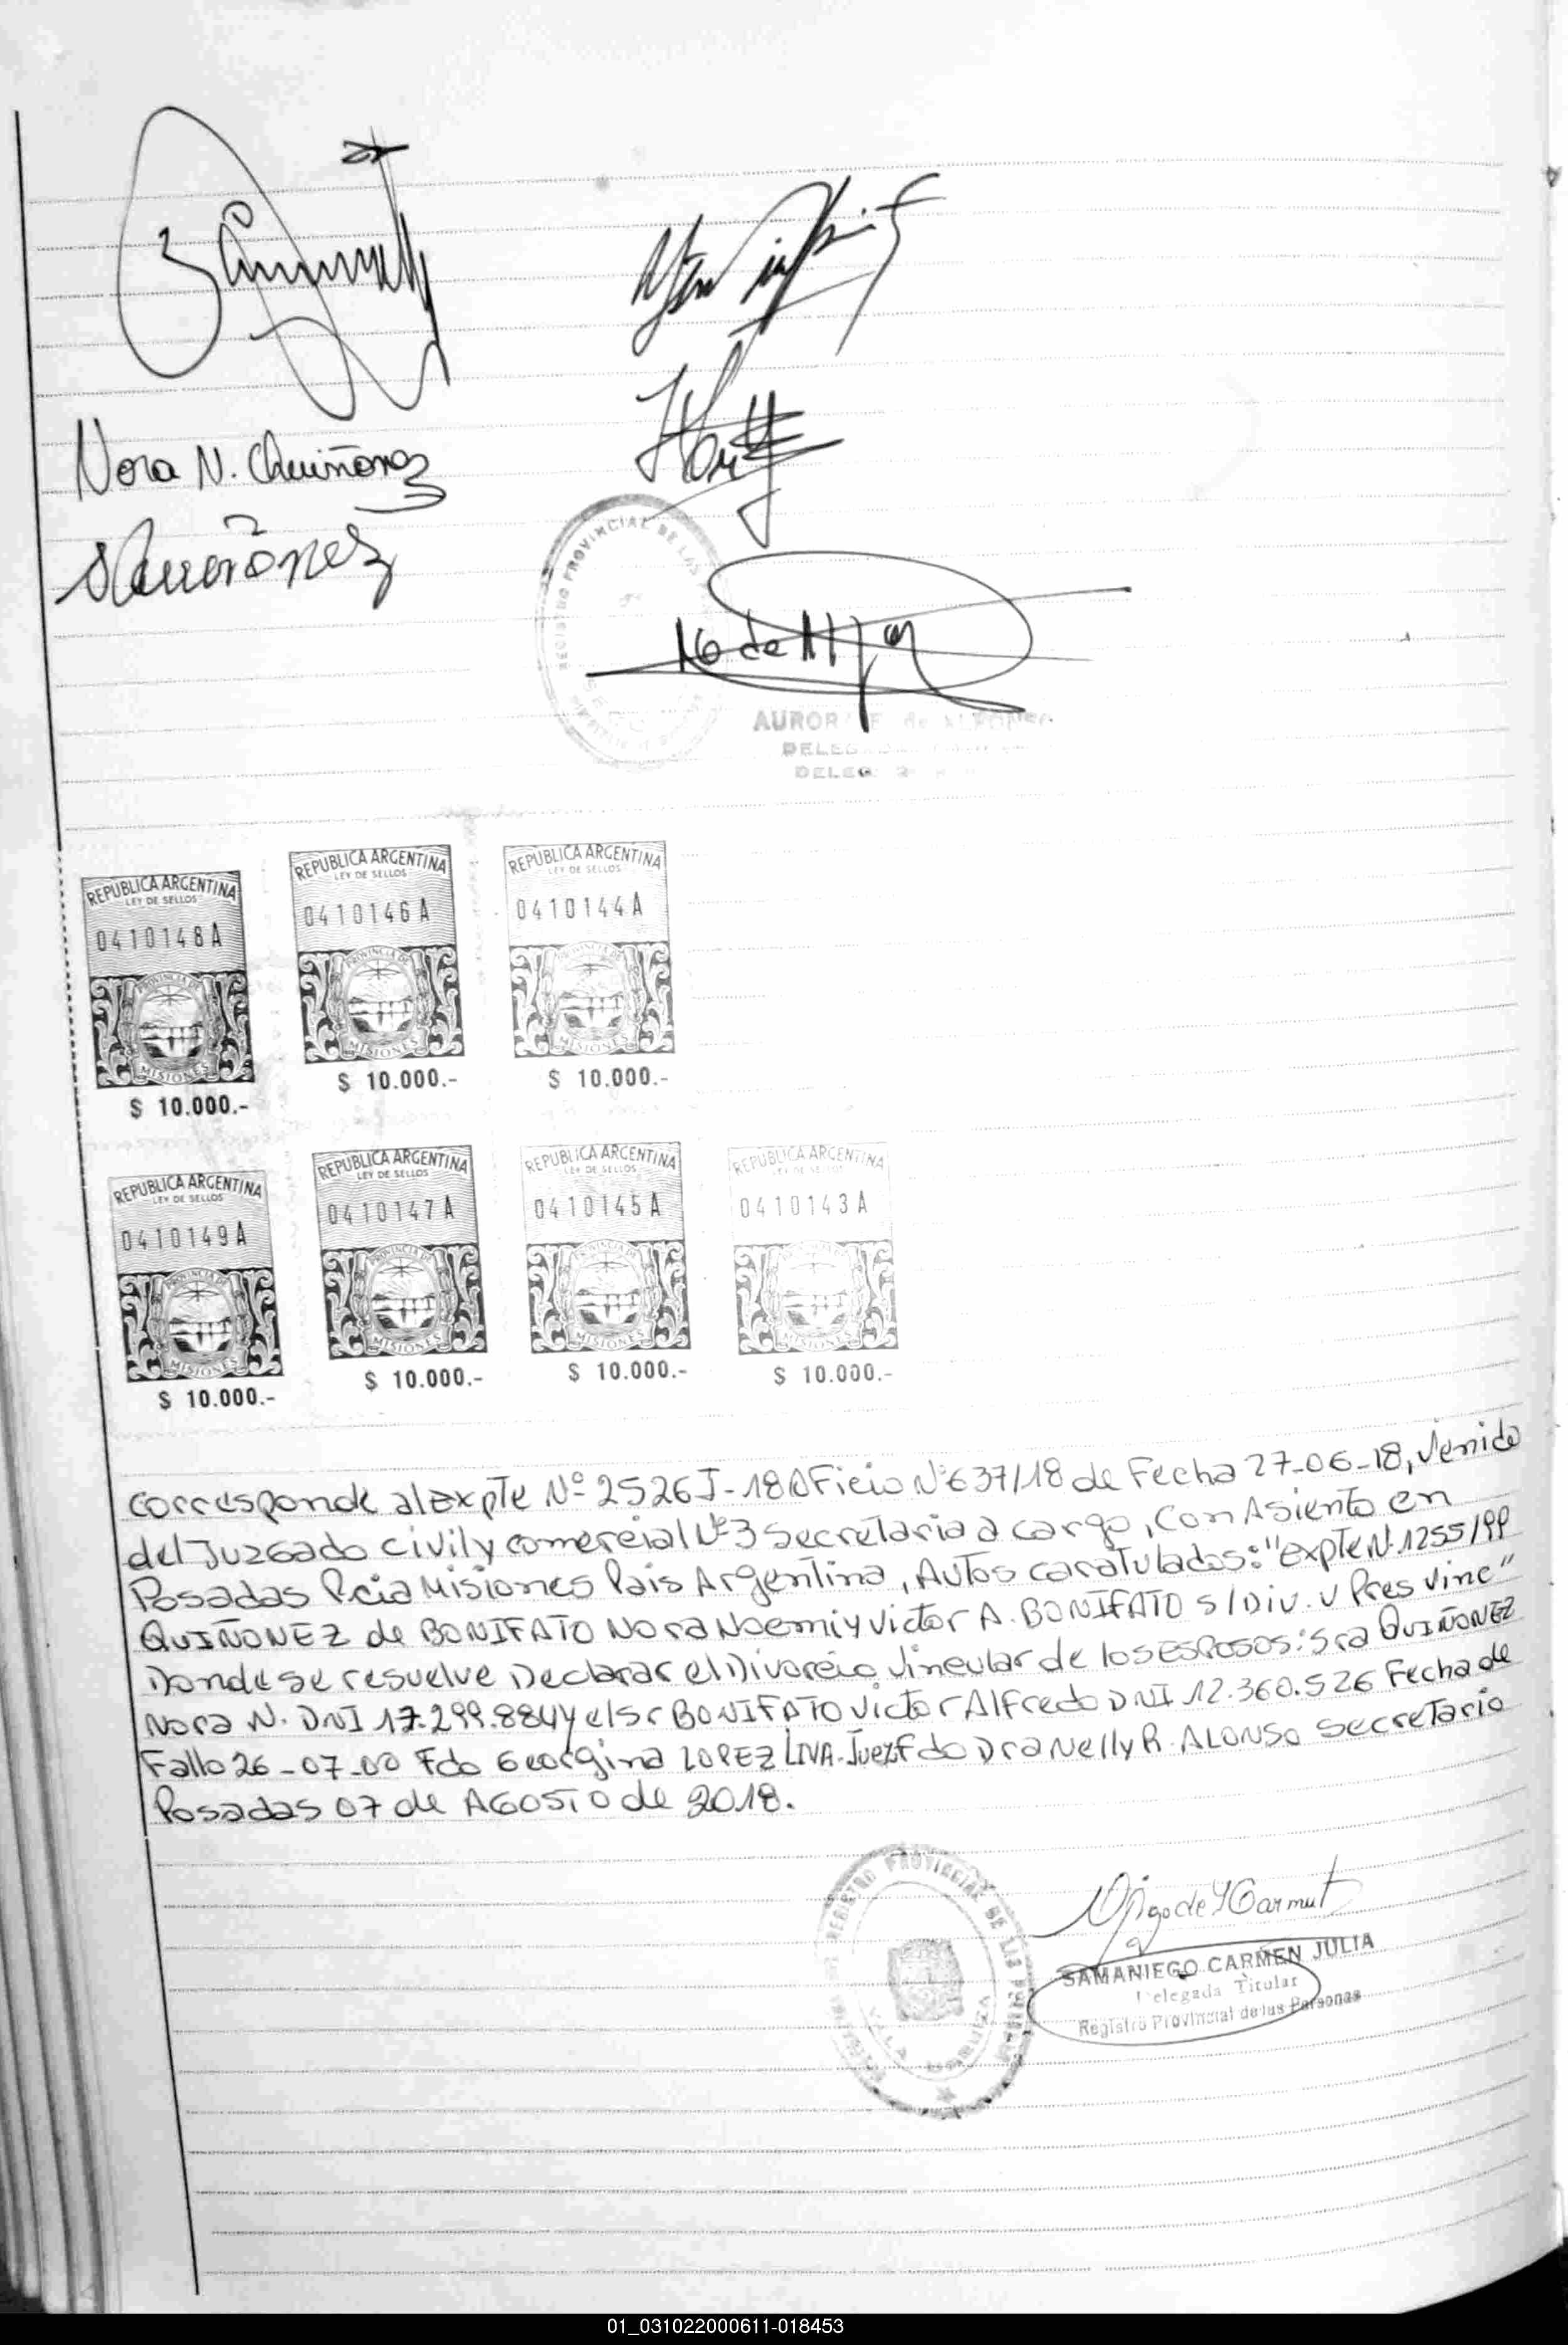 Nora N. Quiñonez
Quiñonez
REGISTRO PROVINCIAL DE LAS
AUROR
DELEG
DELEG
REPUBLICA ARGENTINA
LEY DE SELLOS
0410148A
PROVINCIA DE
MISIONES
$ 10.000.-
REPUBLICA ARGENTINA
LEY DE SELLOS
0410146A
PROVINCIA DE
MISIONES
$ 10.000.-
REPUBLICA ARGENTINA
LEY DE SELLOS
0410144A
PROVINCIA DE
MISIONES
$ 10.000.-
REPUBLICA ARGENTINA
LEY DE SELLOS
0410149A
PROVINCIA DE
MISIONES
$ 10.000.-
REPUBLICA ARGENTINA
LEY DE SELLOS
0410147A
PROVINCIA DE
MISIONES
$ 10.000.-
REPUBLICA ARGENTINA
LEY DE SELLOS
0410145A
PROVINCIA DE
MISIONES
$ 10.000.-
REPUBLICA ARGENTINA
LEY DE SELLOS
0410143A
PROVINCIA DE
MISIONES
$ 10.000.-
Corresponde al expte Nº 2526J-18 Oficio Nº 637/18 de Fecha 27-06-18, Venido
del Juzgado civil y comercial Nº 3 Secretaria a cargo, Con Asiento en
Posadas Pcia Misiones Pais Argentina, Autos caratulados: "Expte N. 1255/99
QUIÑONEZ de BONIFATO Nora Noemi y Victor A. BONIFATO s/Div. V Pres Vinc"
Donde se resuelve Declarar el Divorcio Vincular de los ESPOSOS: Sra QUIÑONEZ
Nora N. DNI 17.299.884 y el Sr BONIFATO Victor Alfredo DNI 12.360.526 Fecha de
Fallo 26-07-00 Fdo Georgina LOPEZ LIVA-Juez Fdo Dra Nelly R. ALONSO Secretario
Posadas 07 de AGOSTO de 2018.
REGISTRO PROVINCIAL DE LAS PERSONAS
SAMANIEGO CARMEN JULIA
Delegada Titular
Registro Provincial de las Personas
01_031022000611-018453